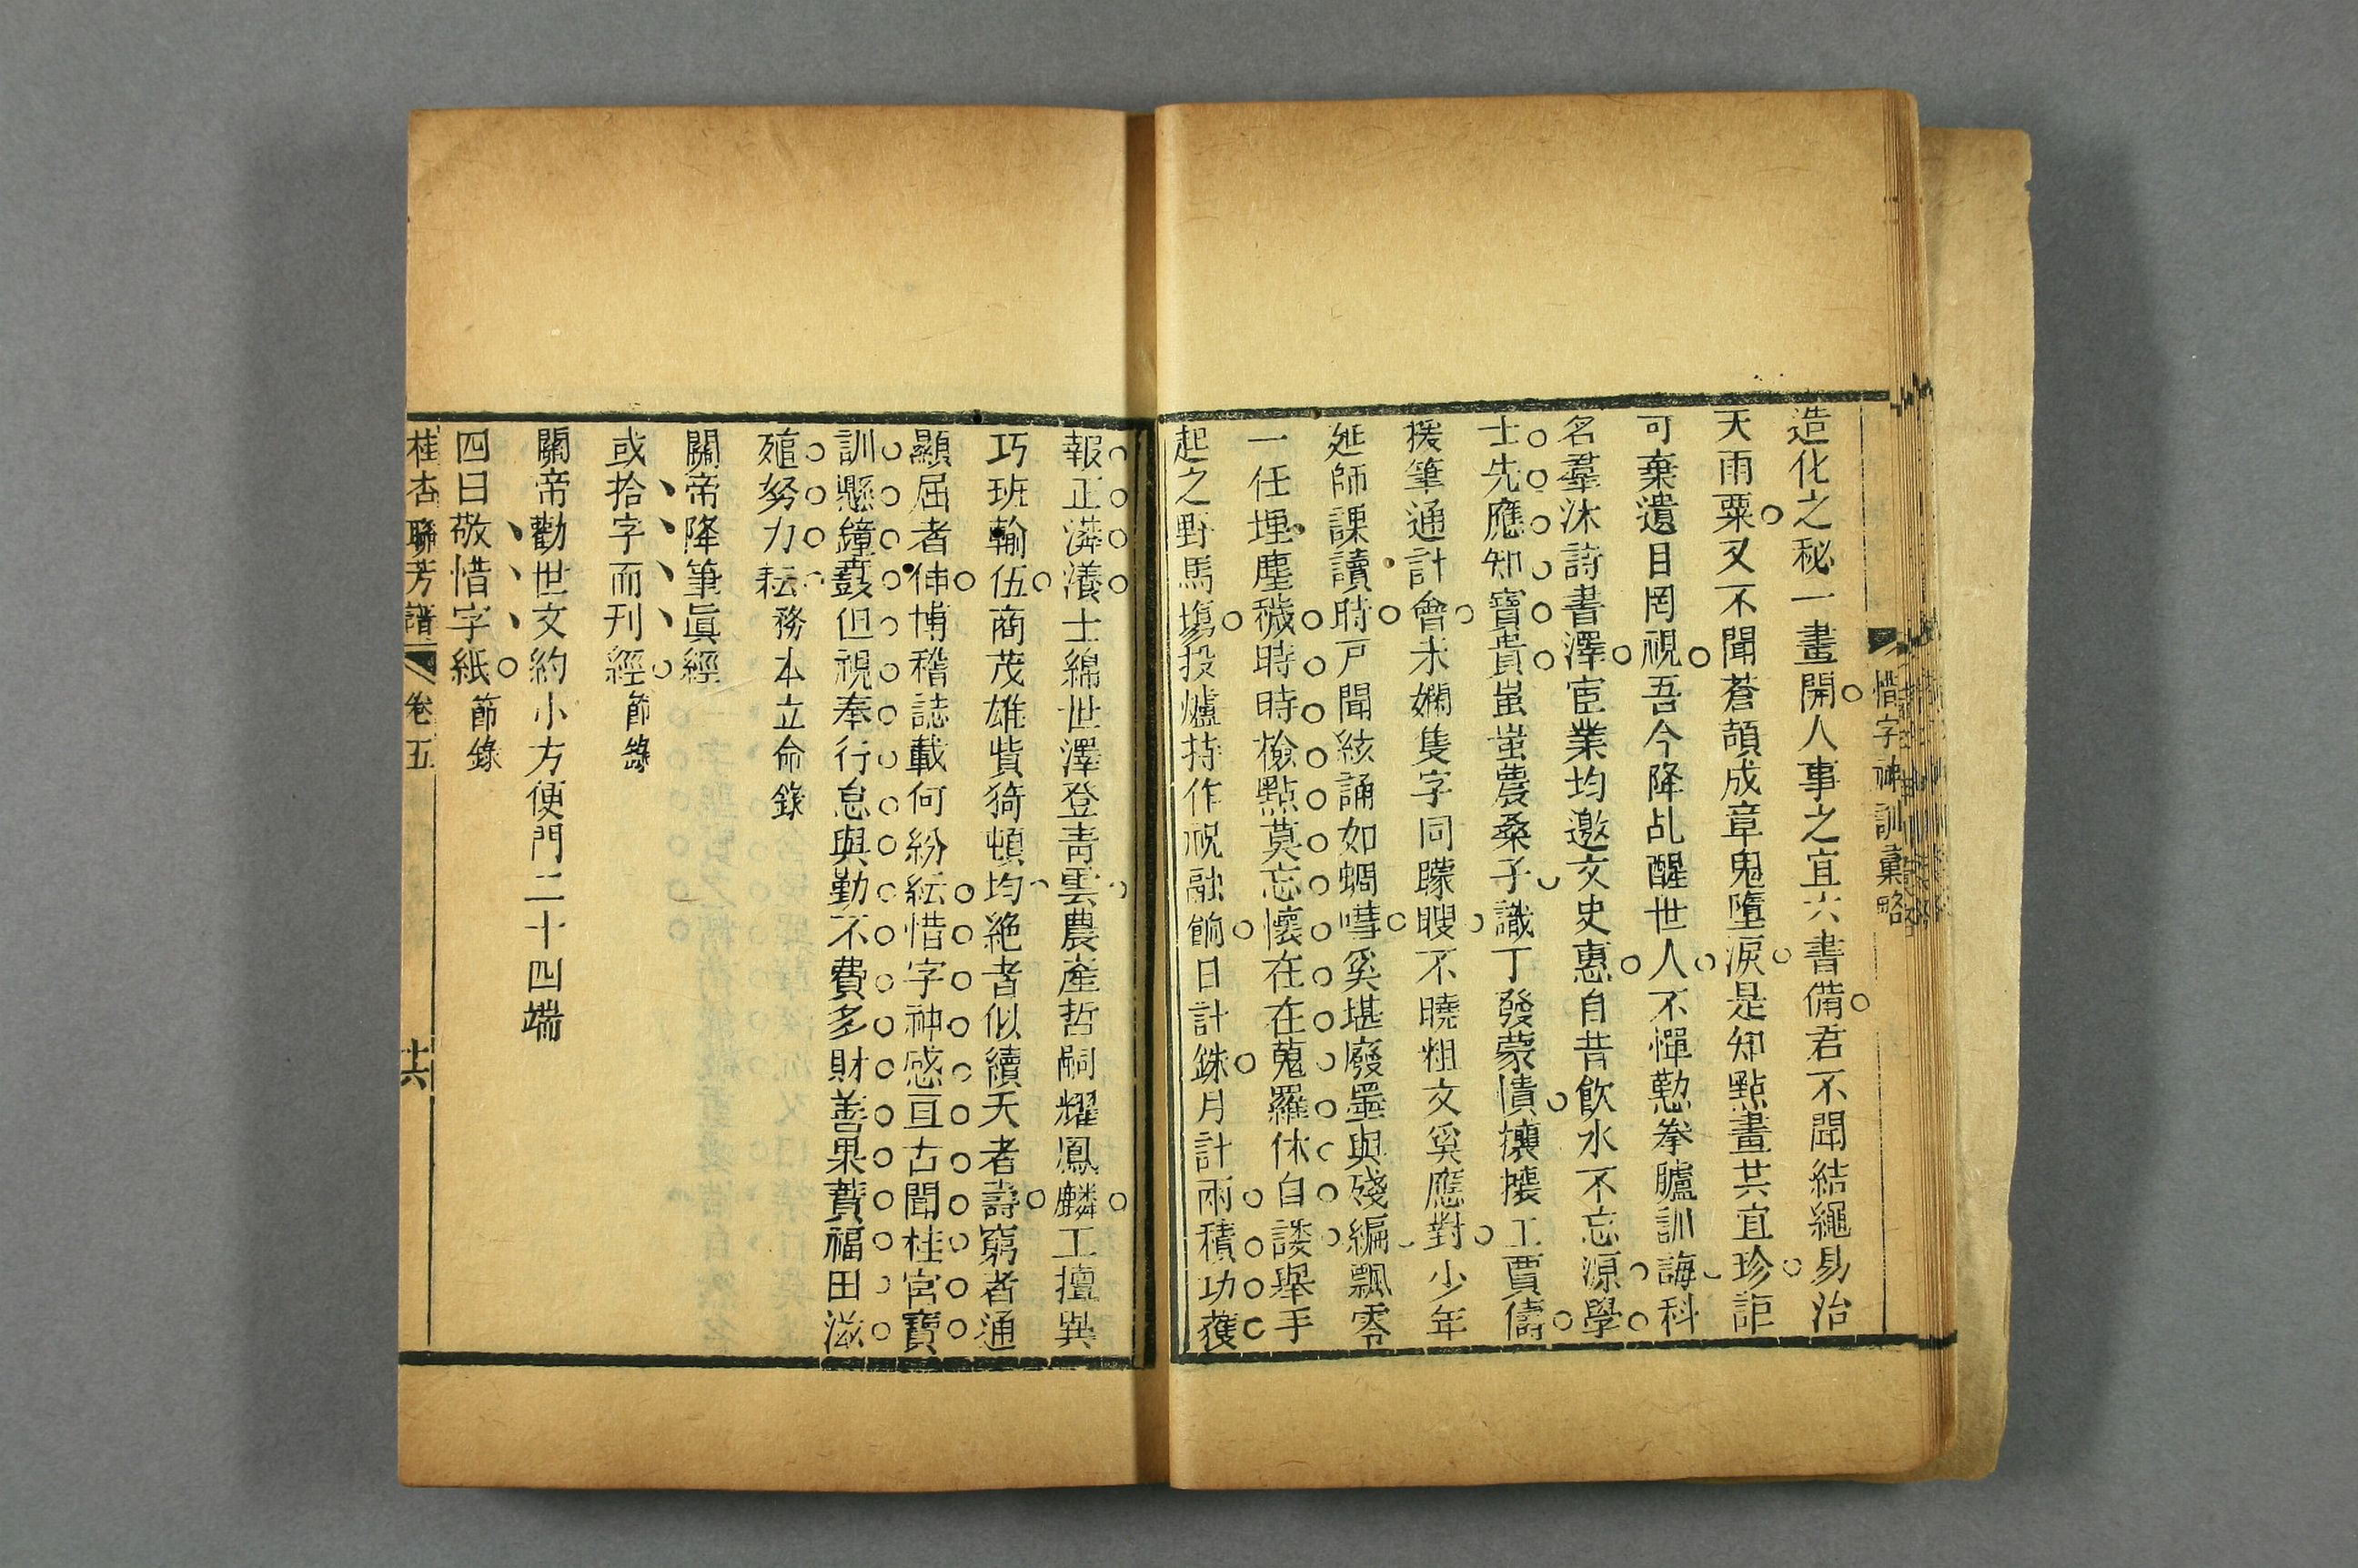 惜字神訓彙略
造化之秘一畫開人事之宜六書備君不聞結繩易治
天雨粟又不聞蒼頡成章鬼墮淚是知點畫共宜珍詎
可棄遺目罔視吾今降乩醒世人不憚懃拳臚訓誨科
名羣沐詩書澤宦業均邀文史惠自昔飲水不忘源學
士先應知寶貴蚩蚩農桑子識丁發蒙憒攘攘工賈儔
援筆通計會未嫻隻字同矇瞍不曉粗文奚應對少年
延師課讀時戸聞絃誦如蜩嘒奚堪廢墨與殘編飄零
一任埋塵穢時時檢點莫忘懷在在蒐羅休自諉舉手
起之野馬塲投爐持作祝融餉日計銖月計兩積功獲
報正漭瀁士綿世澤登靑雲農產哲嗣耀鳳麟工擅異
巧班輸伍商茂雄貲猗頓均絶者似續夭者壽窮者通
顯屈者伸博稽誌載何紛紜惜字神感亘古聞桂宮寶
訓懸鐘鼓但視奉行怠與勤不費多財善果蕡福田滋
殖努力耘務本立命錄
關帝降筆眞經
或拾字而刋經節錄
關帝勸世文約小方便門二十四端
四曰敬惜字紙節錄
桂杏聯芳譜 卷五 十六